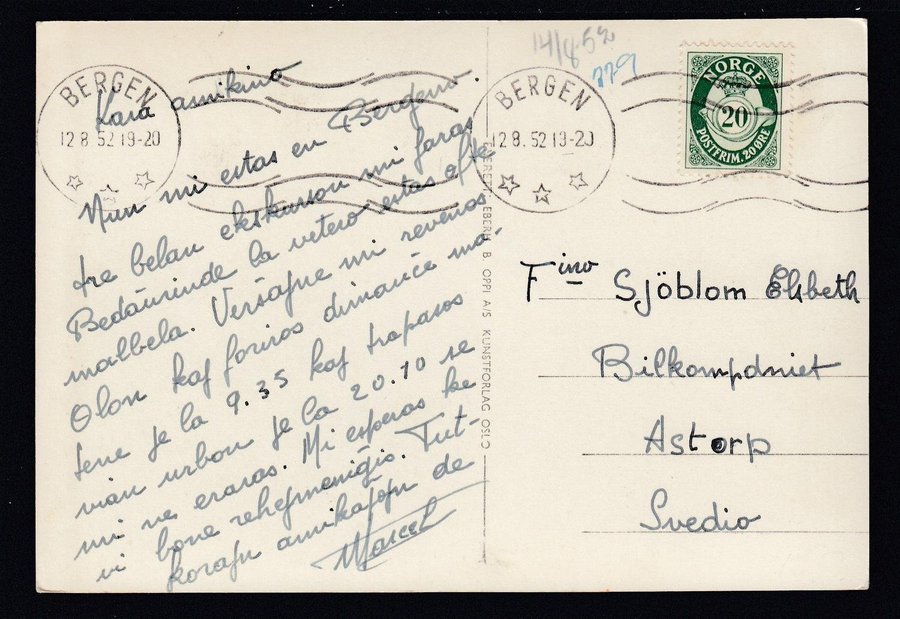 Kara amikino
Nun mi estas en Bergeno.
tre belan ekskurson mi faras
Bedaŭrinde la vetero estas ofte
malbela. Verŝajne mi revenos
Olon kaj foriros dimanĉe ma-
tene je la 9.35 kaj trapasos
vian urbon je la 20.10 se
mi ne eraras. Mi esperas ke
vi bone rehejmeniĝis. Tut-
korajn amikaĵojn de
Marcel
BERGEN
12 8. 52 19-20
BERGEN
12 8. 52 19-20
14/8 52
779
NORGE
20
POSTFRIM. 20 ØRE
ENERETT: EBERH. B. OPPI A/S KUNSTFORLAG OSLO
Fino Sjöblom Elisbeth
Bilkompdniet
Astorp
Svedio